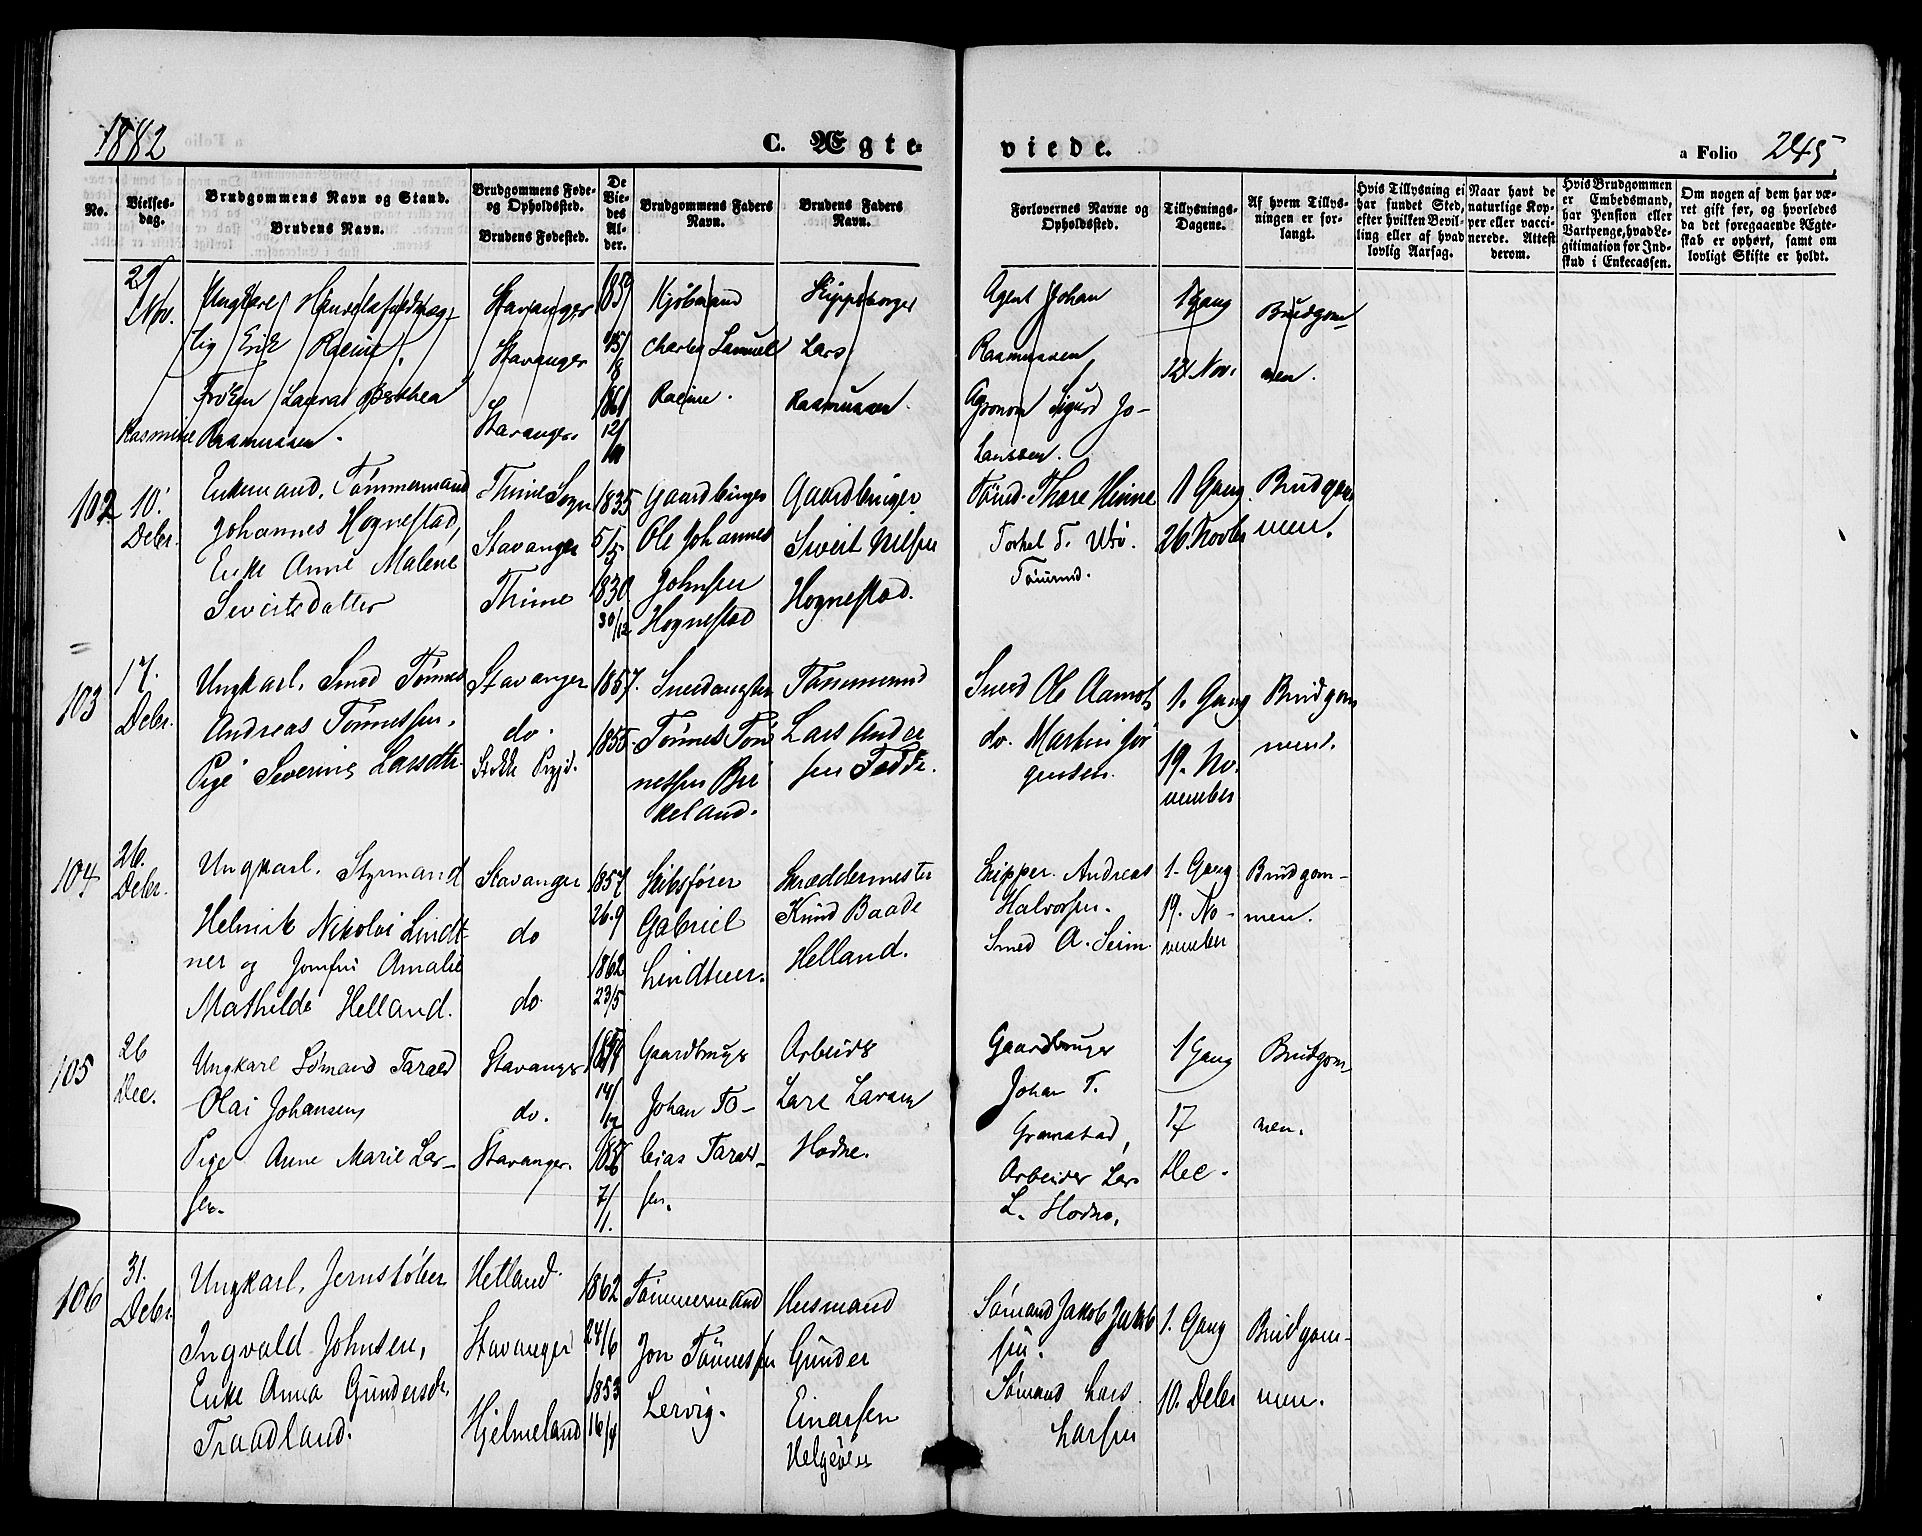 1882
C. Ægte-
viede.
a Folio 245
No.
Vielses-
dag.
Brudgommens Navn og Stand.
Brudens Navn.
Brudgommens Føde-
og Opholdssted.
Brudens Fødested.
De
Vie-
des
Al-
der.
Brudgommens Faders
Navn.
Brudens Faders
Navn.
Forlovernes Navne og
Opholdssted.
Tillysnings-
Dagene.
Af hvem Tillys-
ningen er for-
langt.
Hvis Tillysning ei
har fundet Sted,
efter hvilken Bevil-
ling eller af hvad
lovlig Aarsag.
Naar havt de
naturlige Kop-
per eller vacci-
nerede. Attest
derom.
Hvis Brudgommen
er Embedsmand,
har Pension eller
Vartpenge, hvad Le-
gitimation for Ind-
skud i Enkecassen.
Om nogen af dem har væ-
ret gift før, og hvorledes
da det foregaaende Ægte-
skab er ophørt, samt om
lovligt Skifte er holdt.
Nov.
Ungkarl
Erik Racine,
Frøken Laura Berthea
Rasmine Rasmussen.
Stavanger
Stavanger
Stavanger.
1859
1861
12/
Kjøbmand
Charles Samuel
Racine.
Skippsborger
Lars
Rasmussen.
Agent Johan
Rasmussen,
Agronom Sigurd Jo-
1 Gang
12 Nov.
Brudgom-
men.
102
10.
Debr.
Enkemand, Tømmermand
Johannes Hognestad,
Enke Anne Malene
Sivertsdatter
Thime Sogn
Stavanger
Thime
1835
5/5
1830
30/12
Gaardbruger
Ole Johannes
Johnsen
Hognestad
Gaardbruger
Sivert Nilsen
Hognestad.
Tømd. Thore Hinne
Torkel T. Ubø.
Tømmd.
1 Gang.
26. Novbr
Brudgom
men.
103
17.
Debr.
Ungkarl, Smed Tønnes
Andreas Tønnessen.
Pige Severine Larsdtr.
Stavanger
do.
1857.
1855
Tønnes Tøn
nessen Bir
keland.
Tømmermd
Lars Ander
sen Fedde.
Smed Ole Aamot
do. Martin Jør
gensen.
1. Gang
19. No.
vember
Brudgom
mend.
104
26.
Debr.
Ungkarl, Styrmand
Helmik Nikolai Lindt-
ner og Jomfru Amalie
Mathilde Helland.
Stavanger
do
do
1857
26.9
1862
23/5
Skibsfører
Gabriel
Lindtner.
Skræddermester
Knud Baade
Helland.
Skipper. Andreas
Halvorsen.
Smed A. Seim
1. Gang
19. No-
vember
Brudgom-
men.
105
26
Dec.
Ungkarl Sømand Tarald
Olai Johansen,
Pige Anne Marie Lar-
sen.
Stavanger
do.
Stavanger.
14/12
7/11.
Gaardbruger
Johan To-
bias Tarald-
sen.
Arbeider
Lars Larsen
Hodne.
Gaardbruger
Johan T.
Gramstad,
Arbeider Lars
L. Hodne.
1 Gang
17
Dec.
Brudgom
men.
106
31.
Debr.
Ungkarl, Jernstøber
Ingvald Johnsen,
Enke Anna Gundersdr.
Traadland.
Hetland
Stavanger
Hjelmeland
1862
24/6
1853
16/4
Tømmermand
Jon Tønnessen
Lervig.
Husmand
Gunder
Einarsen
Helgøen
Sømand Jakob Jakob
sen.
Sømand Lars
Larsen
1. Gang
10. Debr
Brudgom-
men.